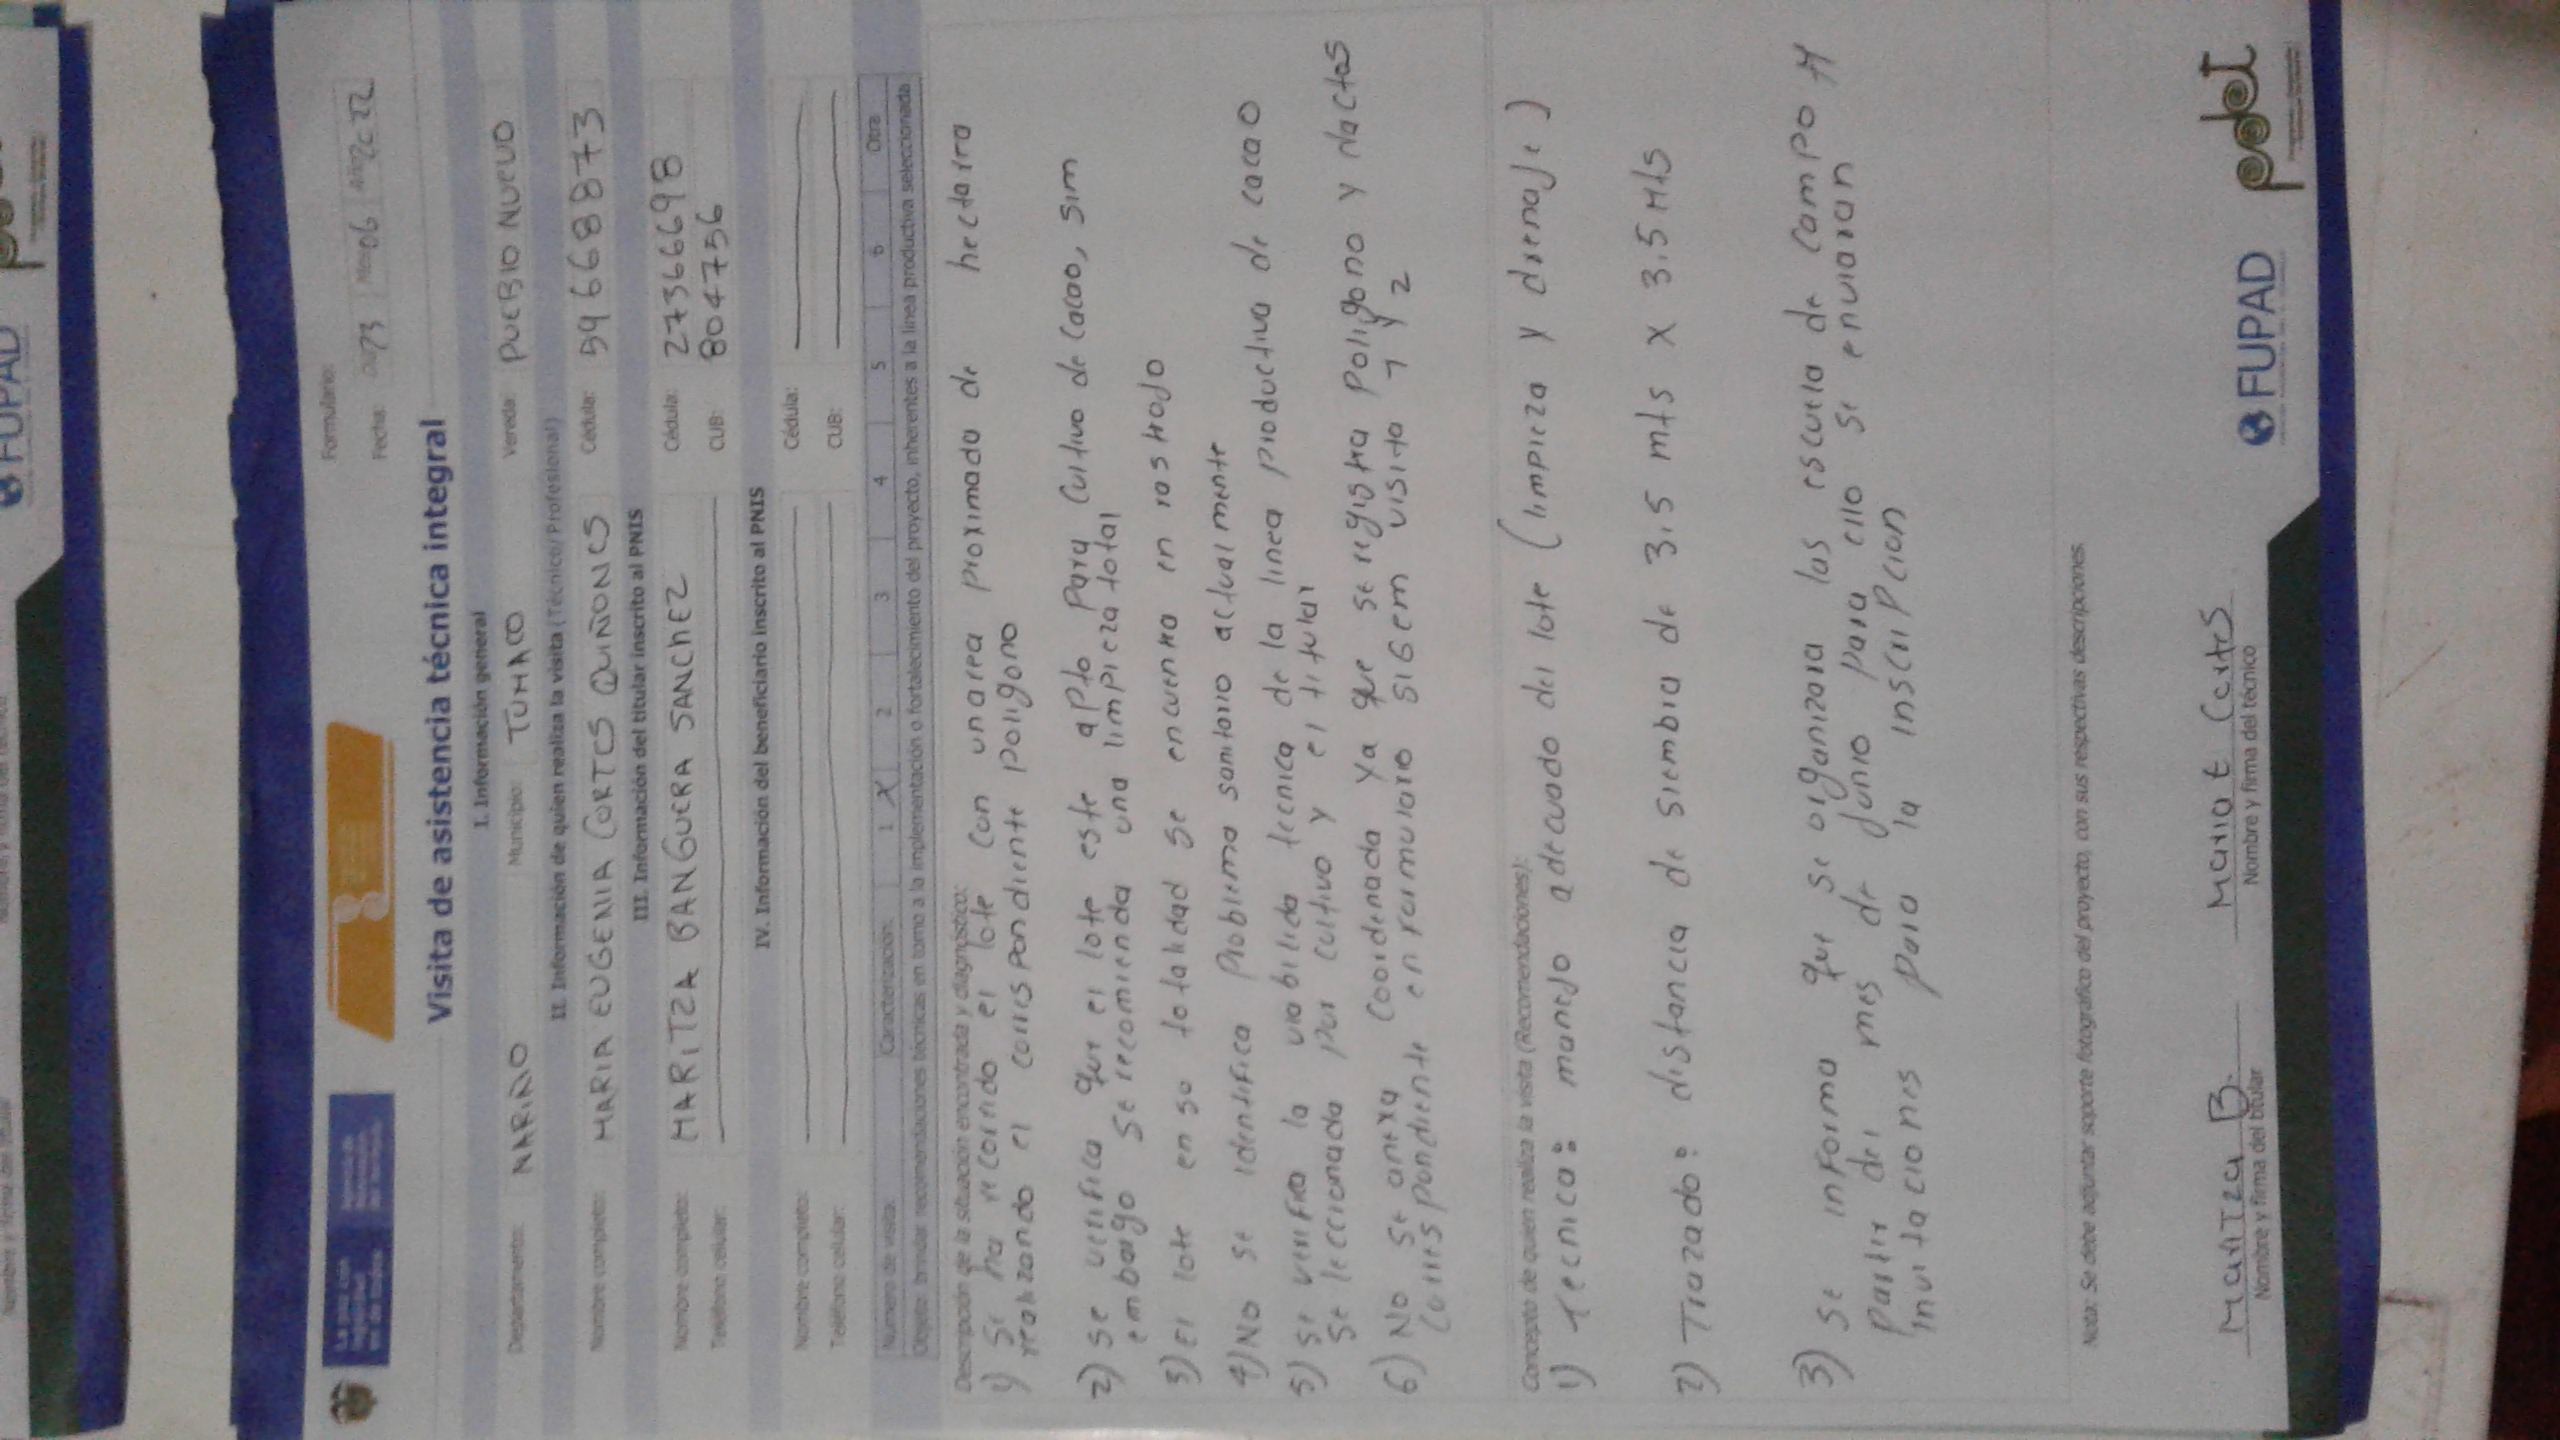 FUPAD
Formulario:
Fecha: Mes 06 Año 2022
Visita de asistencia técnica integral
I. Información general
Departamento: NARIÑO Municipio: TUMACO Vereda: PUEBLO NUEVO
II. Información de quien realiza la visita (Técnico/ Profesional)
Nombre completo: MARIA EUGENIA CORTES QUIÑONES Cédula: 596688873
III. Información del titular inscrito al PNIS
Nombre completo: MARITZA BANGUERA SANCHEZ Cédula: 27366698
Teléfono celular: CUB: 804756
IV. Información del beneficiario inscrito al PNIS
Nombre completo: Cédula:
Teléfono celular: CUB:
Número de visita: Caracterización: 1 X 2 3 4 5 6 Otra
Objeto: brindar recomendaciones técnicas en torno a la implementación o fortalecimiento del proyecto, inherentes a la línea productiva seleccionada
Descripción de la situación encontrada y diagnóstico:
1) Se ha recorrido el lote con un area proximada de hectarea
realizando el correspondiente poligono
2) Se verifica que el lote este apto para cultivo de cacao, sim
embargo se recomienda una limpieza total
3) El lote en so totalidad se encuentra en rastrojo
4) No se identifica problema sanitario actualmente
5) Se verifica la viabilida tecnica de la linea productiva de cacao
Seleccionada por cultivo y el titular
6) No se anexa coordenada ya que se registra poligono y
correspondiente en formulario SIGEM visita 1 y 2
Concepto de quien realiza la visita (Recomendaciones):
1) Tecnica: manejo adecuado del lote (limpieza y drenaje)
2) Trazado: distancia de siembra de 3.5 mts x 3.5 Mts
3) Se informa que se organizara las escuela de campo A
partir del mes de Junio para ello se enviaran
invitaciones para la inscripcion
Nota: Se debe adjuntar soporte fotográfico del proyecto, con sus respectivas descripciones
Maritza B. Maria E Cortes
Nombre y firma del titular Nombre y firma del técnico
FUPAD pdet